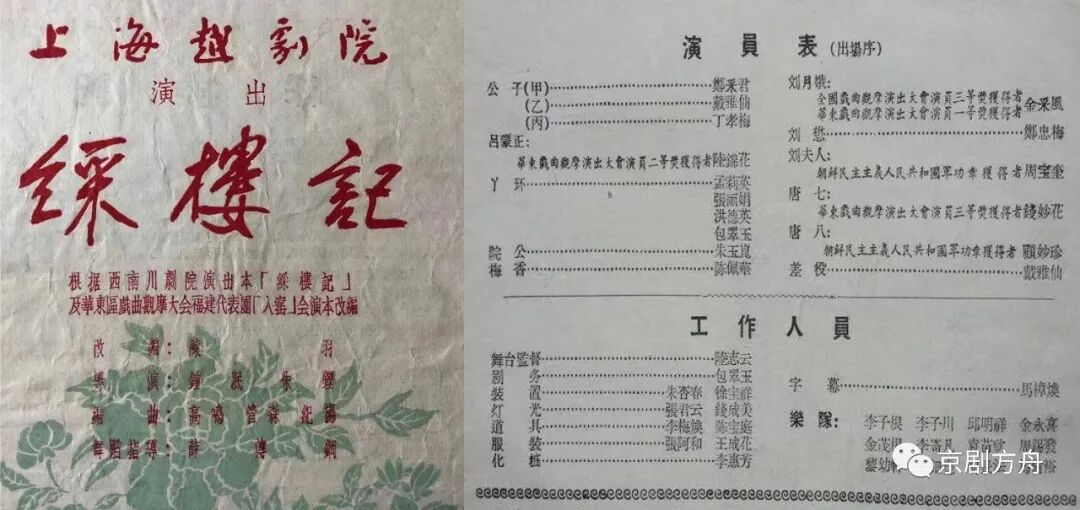 上海越劇院
演出
綵樓記
根据西南川劇院演出本「綵樓記」
及華東區戲曲觀摩大会福建代表團「入窰」会演本改編
改編：陳羽
導演：鍾泯 朱鏗
編曲：高鳴 管林 紀陽
舞蹈指導：薛傳鋼
演員表(出場序)
公子(甲)……鄭采君
(乙)……戴雅仙
(丙)……丁孝梅
呂蒙正：
華東戲曲觀摩演出大會演員二等奬獲得者陸錦花
丫环……孟莉英
張麗娟
洪德英
包翠玉
院公……朱玉崑
梅香……陈佩華
刘月娥：
全國戲曲觀摩演出大會演員三等奬獲得者
華東戲曲觀摩演出大會演員一等奬獲得者
金采風
刘懋……鄭忠梅
刘夫人：
朝鮮民主主義人民共和國軍功章獲得者周宝奎
唐七：
華東戲曲觀摩演出大會演員三等奬獲得者錢妙花
唐八：
朝鮮民主主義人民共和國軍功章獲得者顧妙珍
差役……戴雅仙
工作人員
舞台監督……陸志云
剧务……包翠玉
裝置……朱杏春 徐宝祥
灯光……張君云 錢成美
道具……李梅煥 陈宝庭
服裝……張阿和 王成花
化粧……李惠芳
字幕……馬樟煥
樂隊：李子根 李子川 邱明祥 金永喜
金茂 李寄凡 袁苗欣 周錫發
黎幼 裕
京剧方舟